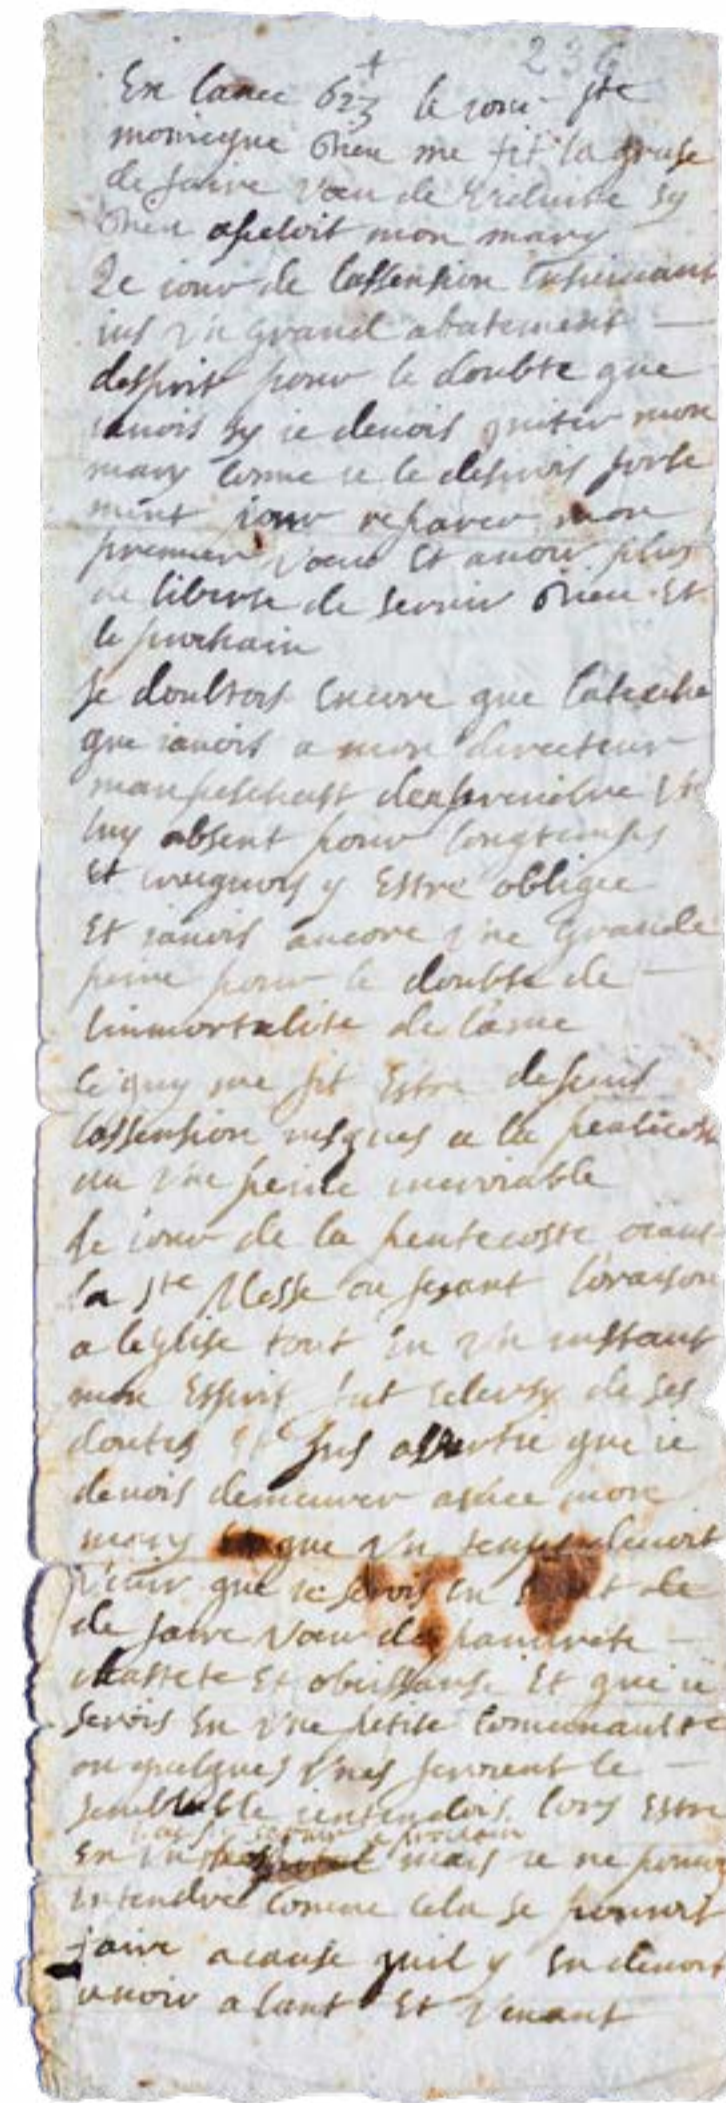 236
+
En lanee 623 le jour ste
monicque Dieu me fit la grase
de faire voeu de viduite sy
Dieu apeloit mon mary
Le jour de lassension ensuivant
jus un grand abatement
desprit pour le doubte que
iauois sy ie deuois quiter mon
mary come ie le desirois forte
ment pour reparer mon
premier voeu Et auoir plus
de liberte de seruir Dieu Et
le prochain
Je doubtois Encore que latache
que iauois a mon directeur
manpeschast den prendre un
luy absent pour longtemps
Et creignois y Estre obligee
Et iauois ancore vne grande
peine pour le doubte de
limmortalite de lame
Ce quy me fit Estre depuis
lassension iusques a la pentecoste
en vne peine increiable
Le jour de la pentecoste oiant
la ste Messe ou fesant loraison
a leglise tout En un instant
mon Esprit fut esclersy de ses
doutes Et fus advertie que ie
deuois demeurer avecc mon
mary Et que un temps deuoit
venir que ie serois en de
de faire voeu de pauurete
chastete Et obeissanse Et que ie
serois En vne petite Comunaulte
ou quelques vnes feroient le
semblable ientendois lors Estre
pour seruir le prochain
En un lieu mais ie ne pouuois
Entendre comme cela se pouuoit
faire a cause quil y En deuoit
auoir alant Et venant